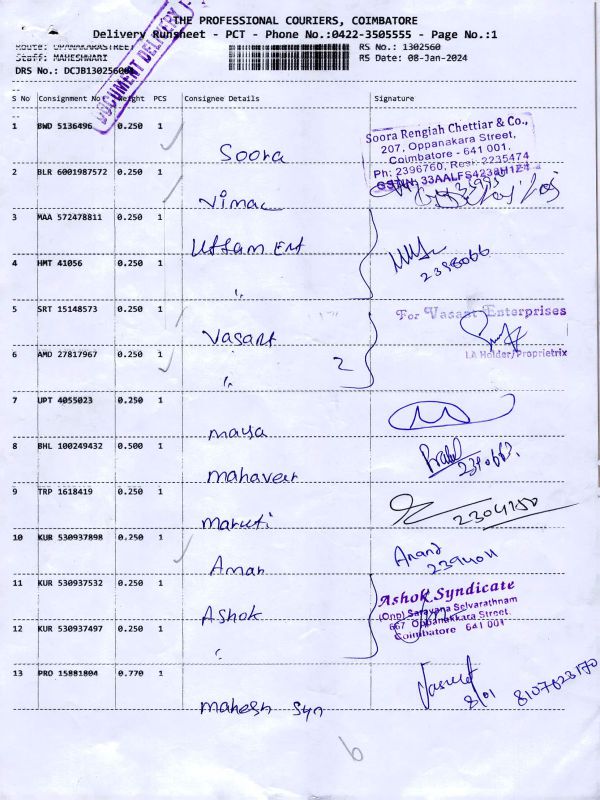 THE PROFESSIONAL COURIERS, COIMBATORE
Delivery Runsheet - PCT - Phone No.:0422-3505555 - Page No.:1
Route: OPANAKARASTREET
RS No.: 1302560
Staff: MAHESHWARI
RS Date: 08-Jan-2024
DRS No.: DCJB1302560
DOCUMENT DELIVERY
S No Consignment No Weight PCS Consignee Details Signature
1 BWD 5136496 0.250 1 Soora
Soora Rengiah Chettiar & Co.,
207, Oppanakara Street,
Coimbatore - 641 001.
Ph: 2396760, Resi. 2235474
GSTIN: 33AALFS4238H1Z4
2 BLR 6001987572 0.250 1 Vimal
3 MAA 572478811 0.250 1 Uttam Ent
2398066
4 HMT 41056 0.250 1 "
5 SRT 15148573 0.250 1 Vasant
For Vasant Enterprises
LA Holder/Proprietrix
6 AMD 27817967 0.250 1 " 2
7 UPT 4055023 0.250 1 maya
8 BHL 100249432 0.500 1 mahaveer
9 TRP 1618419 0.250 1 maruti
10 KUR 530937898 0.250 1 Aman
Anand
2394011
11 KUR 530937532 0.250 1 Ashok
Ashok Syndicate
(Onp) Saravana Selvarathnam
667 Oppanakkara Street,
Coimbatore 641 001
12 KUR 530937497 0.250 1 "
13 PRO 15881804 0.770 1 mahesh Syn
8/01 8107623170
6